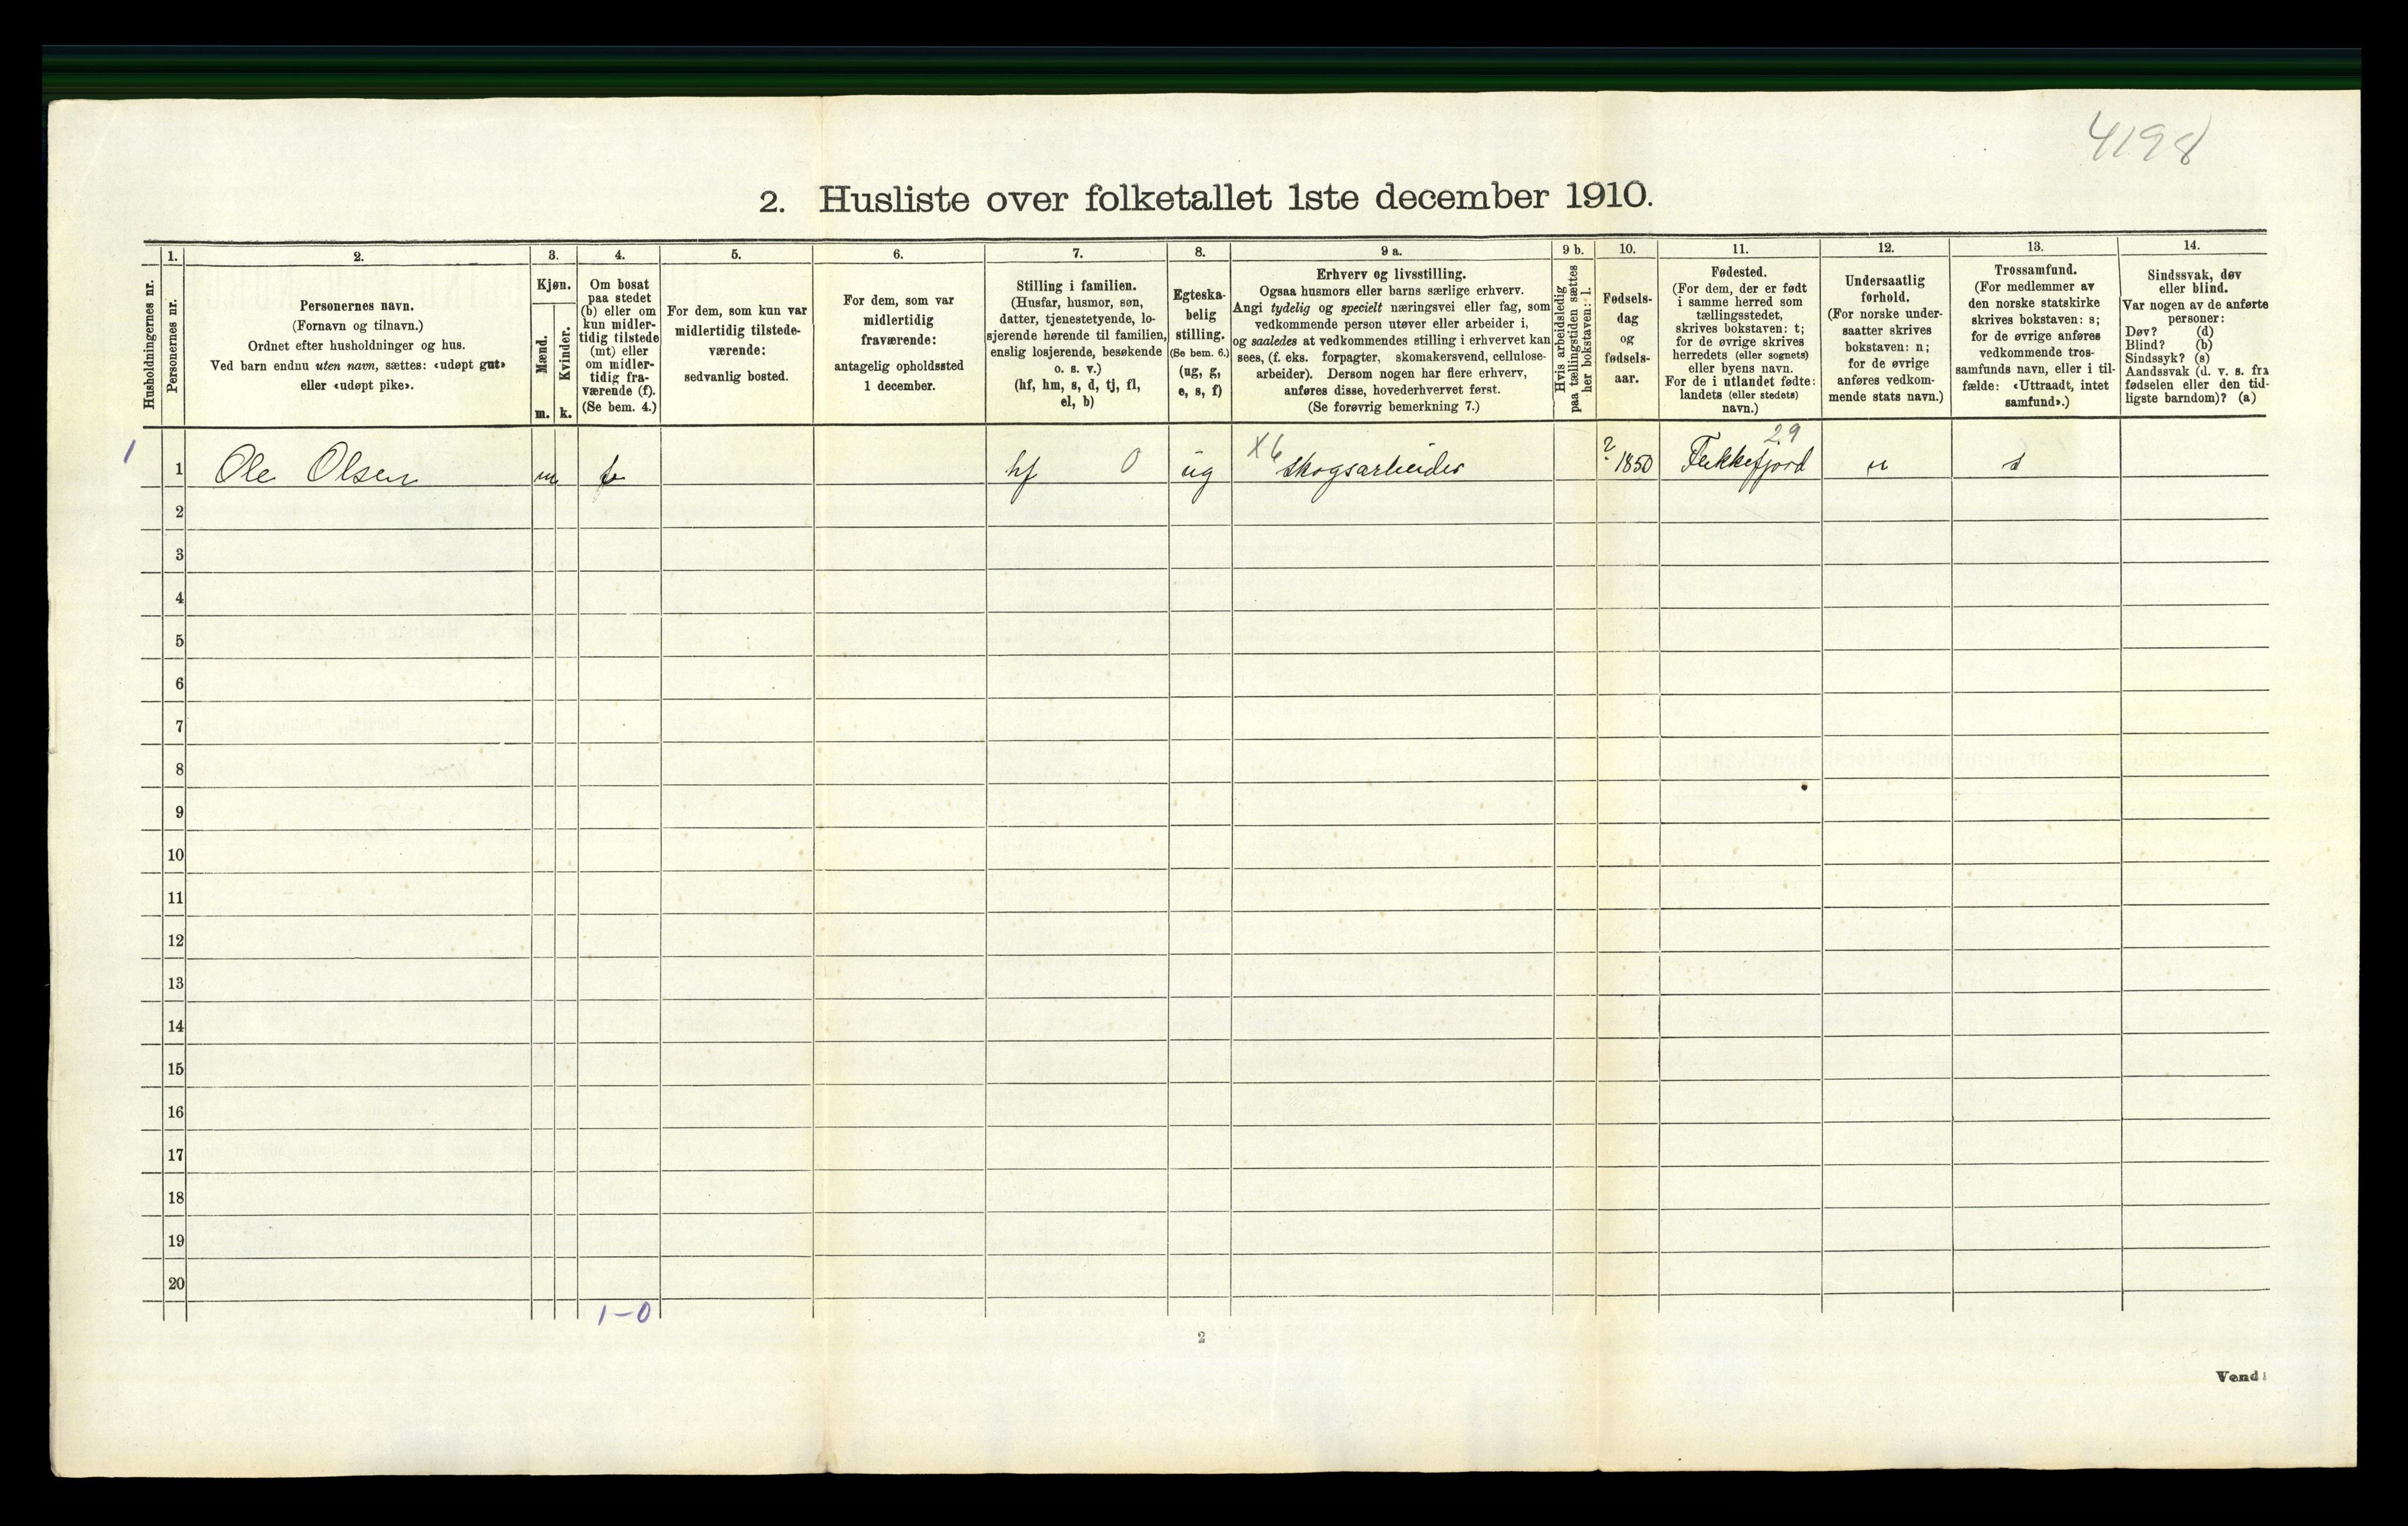 4198
2. Husliste over folketallet 1ste december 1910.
Husholdningernes nr.
1.
Personernes nr.
2.
Personernes navn.
(Fornavn og tilnavn.)
Ordnet efter husholdninger og hus.
Ved barn endnu uten navn, sættes: «udøpt gut»
eller «udøpt pike».
3.
Kjøn.
Mænd.
Kvinder.
m. k.
4.
Om bosat
paa stedet
(b) eller om
kun midler-
tidig tilstede
(mt) eller
om midler-
tidig fra-
værende (f).
(Se bem. 4.)
5.
For dem, som kun var
midlertidig tilstede-
værende:
sedvanlig bosted.
6.
For dem, som var
midlertidig
fraværende:
antagelig opholdssted
1 december.
7.
Stilling i familien.
(Husfar, husmor, søn,
datter, tjenestetyende, lo-
sjerende hørende til familien,
enslig losjerende, besøkende
o. s. v.)
(hf, hm, s, d, tj, fl,
el, b)
8.
Egteska-
belig
stilling.
(Se bem. 6.)
(ug, g,
e, s, f)
9 a.
Erhverv og livsstilling.
Ogsaa husmors eller barns særlige erhverv.
Angi tydelig og specielt næringsvei eller fag, som
vedkommende person utøver eller arbeider i,
og saaledes at vedkommendes stilling i erhvervet kan
sees, (f. eks. forpagter, skomakersvend, cellulose-
arbeider). Dersom nogen har flere erhverv,
anføres disse, hovederhvervet først.
(Se forøvrig bemerkning 7.)
9 b.
Hvis arbeidsledig
paa tællingstiden sættes
her bokstaven: l.
10.
Fødsels-
dag
og
fødsels-
aar.
11.
Fødested.
(For dem, der er født
i samme herred som
tællingsstedet,
skrives bokstaven: t;
for de øvrige skrives
herredets (eller sognets)
eller byens navn.
For de i utlandet fødte:
landets (eller stedets)
navn.)
12.
Undersaatlig
forhold.
(For norske under-
saatter skrives
bokstaven: n;
for de øvrige
anføres vedkom-
mende stats navn.)
13.
Trossamfund.
(For medlemmer av
den norske statskirke
skrives bokstaven: s;
for de øvrige anføres
vedkommende tros-
samfunds navn, eller i til-
fælde: «Uttraadt, intet
samfund».)
14.
Sindssvak, døv
eller blind.
Var nogen av de anførte
personer:
Døv? (d)
Blind? (b)
Sindssyk? (s)
Aandssvak (d. v. s. fra
fødselen eller den tid-
ligste barndom)? (a)
1 1 Ole Olsen m b hf 0 ug X6 skogsarbeider ? 1850 Flekkefjord 29 n s
2
3
4
5
6
7
8
9
10
11
12
13
14
15
16
17
18
19
20
1-0
2
Vend!